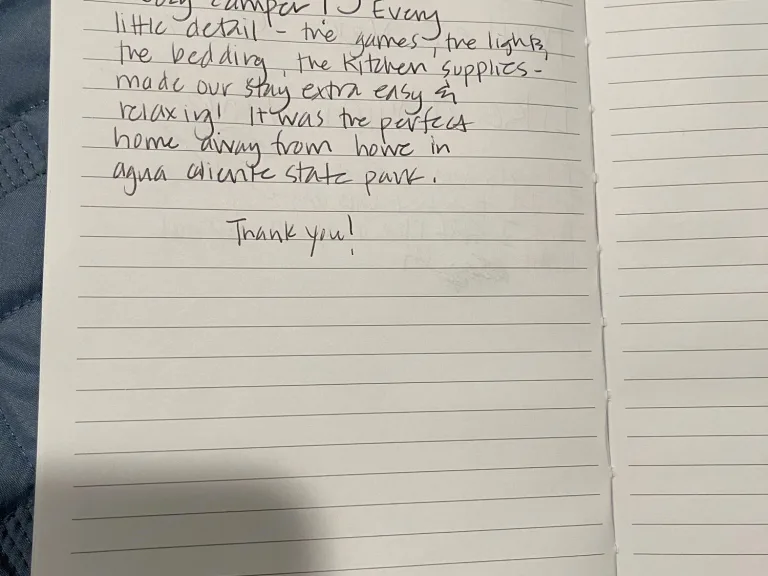 camper! :) Every
little detail - the games, the lights,
the bedding, the kitchen supplies -
made our stay extra easy &
relaxing! It was the perfect
home away from home in
agua caliente state park.
Thank you!